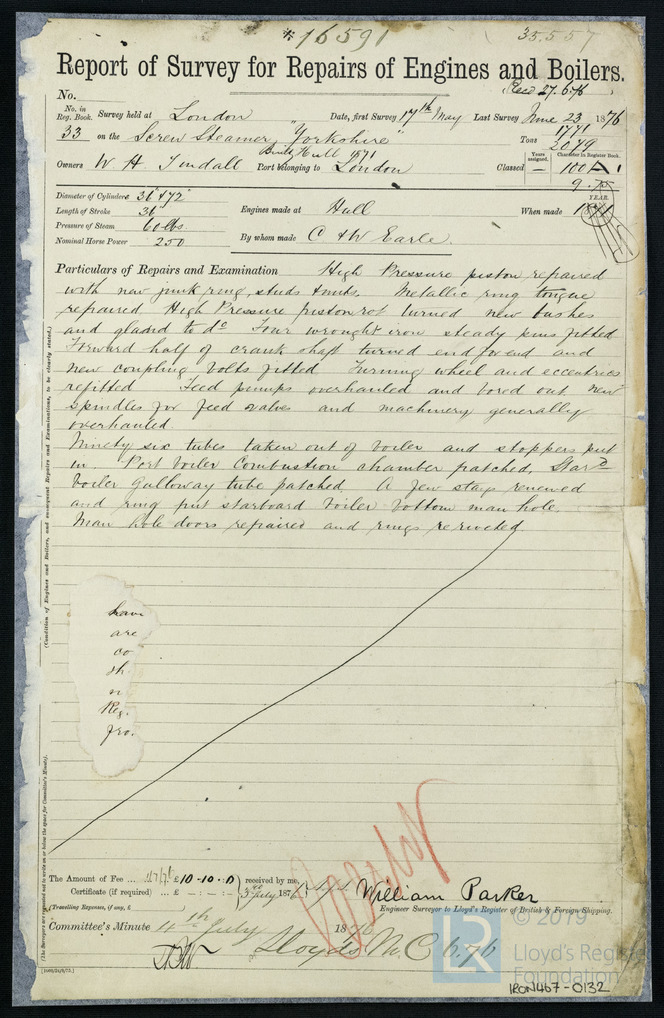 *16591 35.557
Report of Survey for Repairs of Engines and Boilers.
Recd 27.6.76
No.
No. in Reg. Book. Survey held at London Date, first Survey 17th May Last Survey June 23 1876
33 on the Screw Steamer "Yorkshire" Tons 1771 2079
Built Hull 1871
Owners W H Tindall Port belonging to London Classed Years assigned. — Character in Register Book. 100 A 1
YEAR.
Diameter of Cylinders 36" & 72"
Length of Stroke 36 Engines made at Hull When made 1871
Pressure of Steam 60 lbs
Nominal Horse Power 250 By whom made C & W Earle.
Particulars of Repairs and Examination High Pressure piston repaired
with new junk ring, studs & nuts. Metallic ring tongue
repaired High Pressure piston rod turned new bushes
and gland to do Four wrought iron steady pins fitted
Forward half of crank shaft turned end for end and
new coupling bolts fitted Turning wheel and eccentrics
refitted Feed pumps overhauled and bored out new
spindles for feed valves and machinery generally
overhauled.
Ninety six tubes taken out of boiler and stoppers put
in. Port boiler Combustion chamber patched, Starbd
boiler Galloway tube patched A few stays renewed
and ring put starboard boiler bottom man hole.
Man hole doors repaired and rings re riveted
have
are
co
th.
n
Reg.
fro.
(Condition of Engines and Boilers, and subsequent Repairs and Examinations, to be clearly stated.)
(The Surveyors are requested not to write on or below the space for Committee's Minute.)
The Amount of Fee ... £10-10-0 received by me,
Certificate (if required) ... £ - : - : - 3rd July 1876 Sgd. William Parker
(Travelling Expenses, if any, £ Engineer Surveyor to Lloyd's Register of British & Foreign Shipping.
Committee's Minute 4th July 1876
Lloyds M.C 6.76
© 2019
LR
Lloyd's Register
Foundation
IRON467-0132